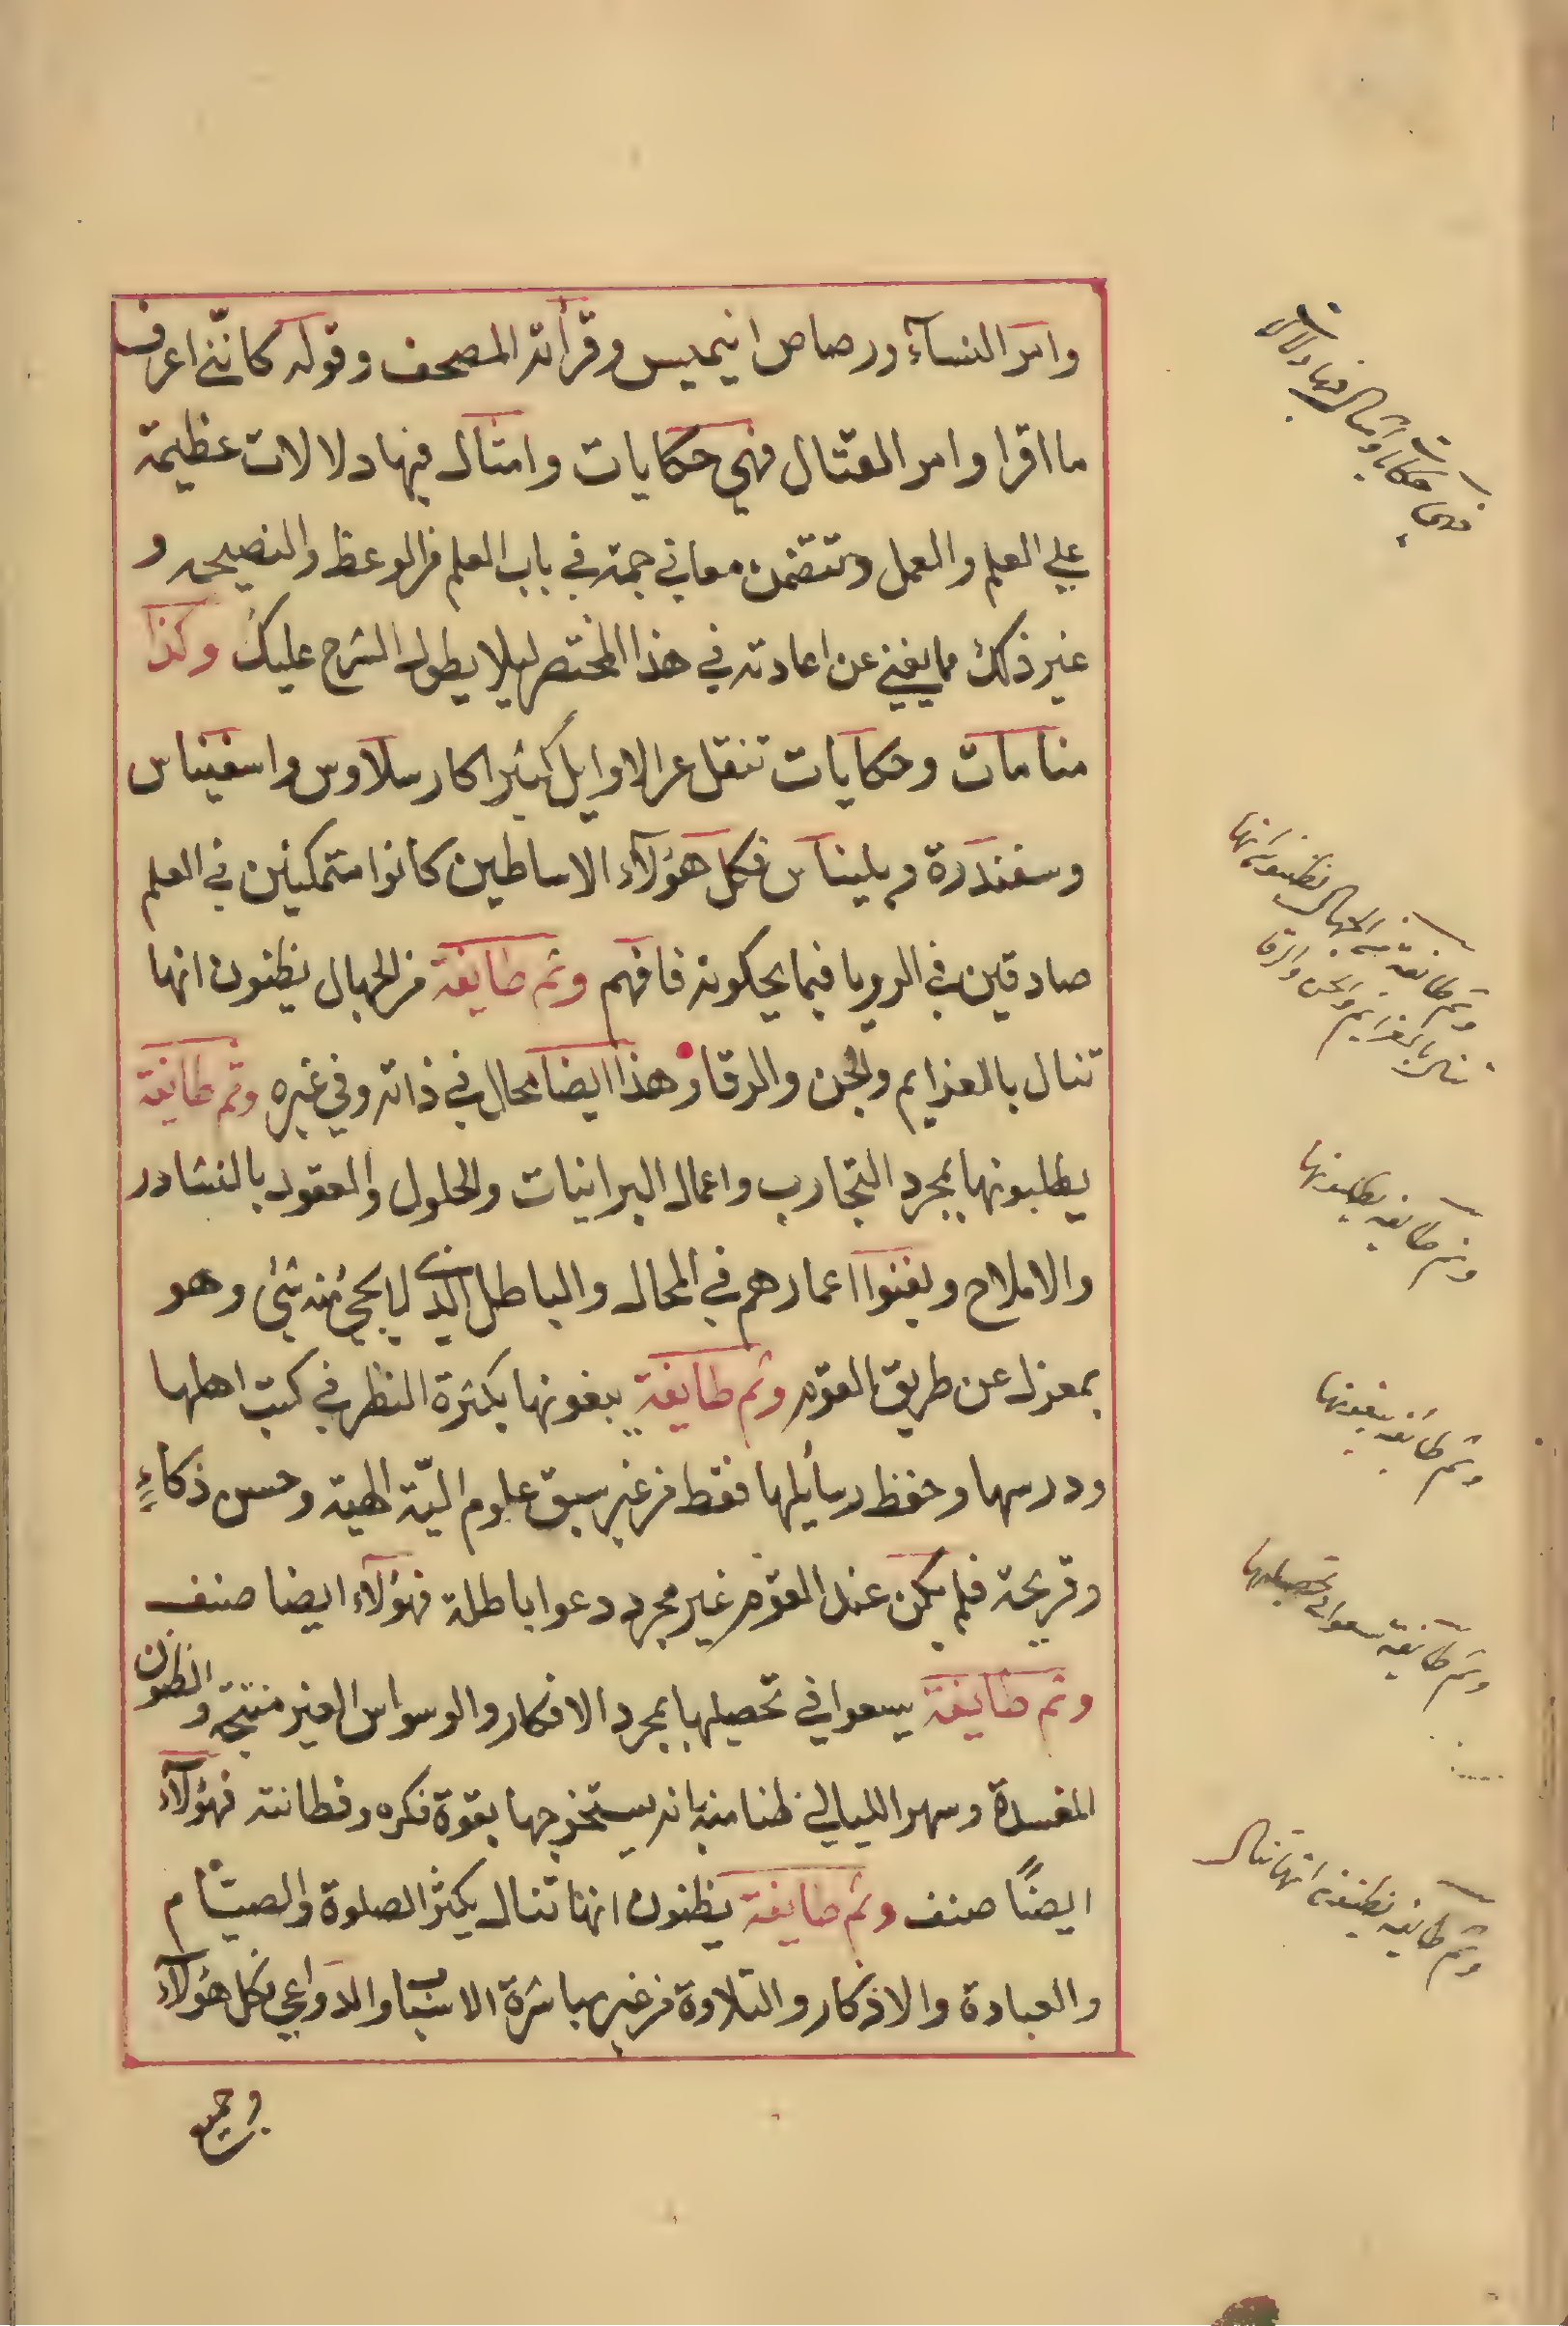 وامر النسآء ورصاص انيميس وقرأته المصحف وقوله كاننى اعرف
ما اقرا وامر القتال فهي حكايات وامثال فيها دلالات عظيمة
علي العلم والعمل وتتضمن معاني جمة في باب العلم من الوعظ والنصيحه و
غير ذلك مما يغني عن اعادته في هذا المختصر ليلا يطول الشرح عليك وكذا
منامات وحكايات تنقل عن الاوايل كثيرا كارسلاوس واسفيناس
وسفندرة وبليناس فكل هؤلآء الاساطين كانوا متمكنين في العلم
صادقين في الرويا فيما يحكونه فافهم وثم طايفة من الجهال يظنون انها
تنال بالعزايم والجن والرقا وهذا ايضا محال في ذاته وفي غيره وثم طايفة
يطلبونها بمجرد التجارب واعمال البرانيات والحلول والعقود بالنشادر
والاملاح ويفنوا اعمارهم في المحال والباطل الذى لا يجئ منه شئ وهو
بمعزل عن طريق القوم وثم طايفة يبغونها بكثرة النظر في كتب اهلها
ودرسها وحفظ رسأيلها فقط من غير سبق علوم اليّة الهية وحسن ذكاءٍ
وقريحة فلم يكن عند القوم غير مجرد دعوا باطلة فهؤلآء ايضا صنف
وثم طايفة يسعوا في تحصيلها بمجرد الافكار والوسواس الغير منتجة والظنون
المفسدة وسهر الليالي ظنا منه بانه يستخرجها بقوة فكره وفطانته فهؤلآء
ايضًا صنف وثم طايفة يظنون انها تنال بكثر الصلوة والصيام
والعبادة والاذكار والتلاوة من غير مباشرة الاسباب والدواعي فكل هؤلآء
وجميع
فهي حكايات وامثال فيها دلالات
وثم طايفة من الجهال يظنون انها
تنال بالعزايم والجن والرقا
وثم طايفة يطلبونها
وثم طايفة يبغونها
وثم طايفة يسعوا في تحصيلها
وثم طايفة يظنون انها تنال